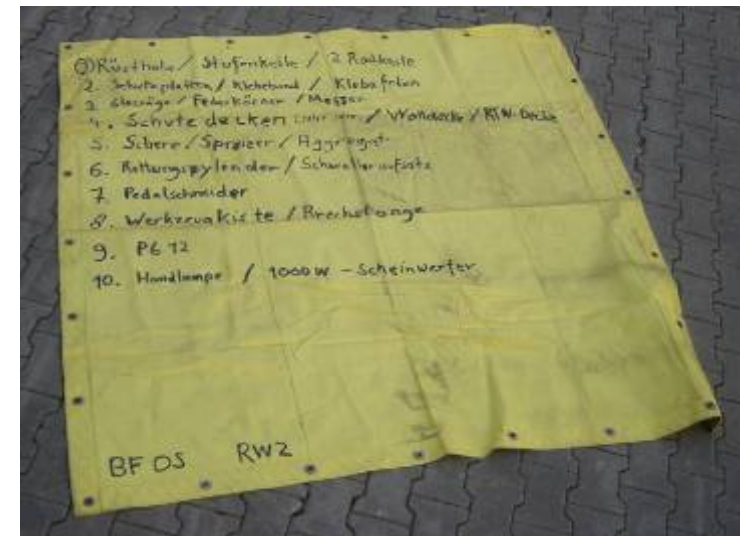 1 Rüstholz / Stufenkeile / 2 Radkeile
2. Schutzplatten / Klebeband / Klebefolien
3. Glassäge / Federkörner / Messer
4. Schutzdecken / Wolldecke / RTW-Decke
5. Schere / Spreizer / Aggregat
6. Rettungszylinder / Schwelleraufsatz
7. Pedalschneider
8. Werkzeugkiste / Brechstange
9. PG 12
10. Handlampe / 1000 W - Scheinwerfer
BF OS RW2